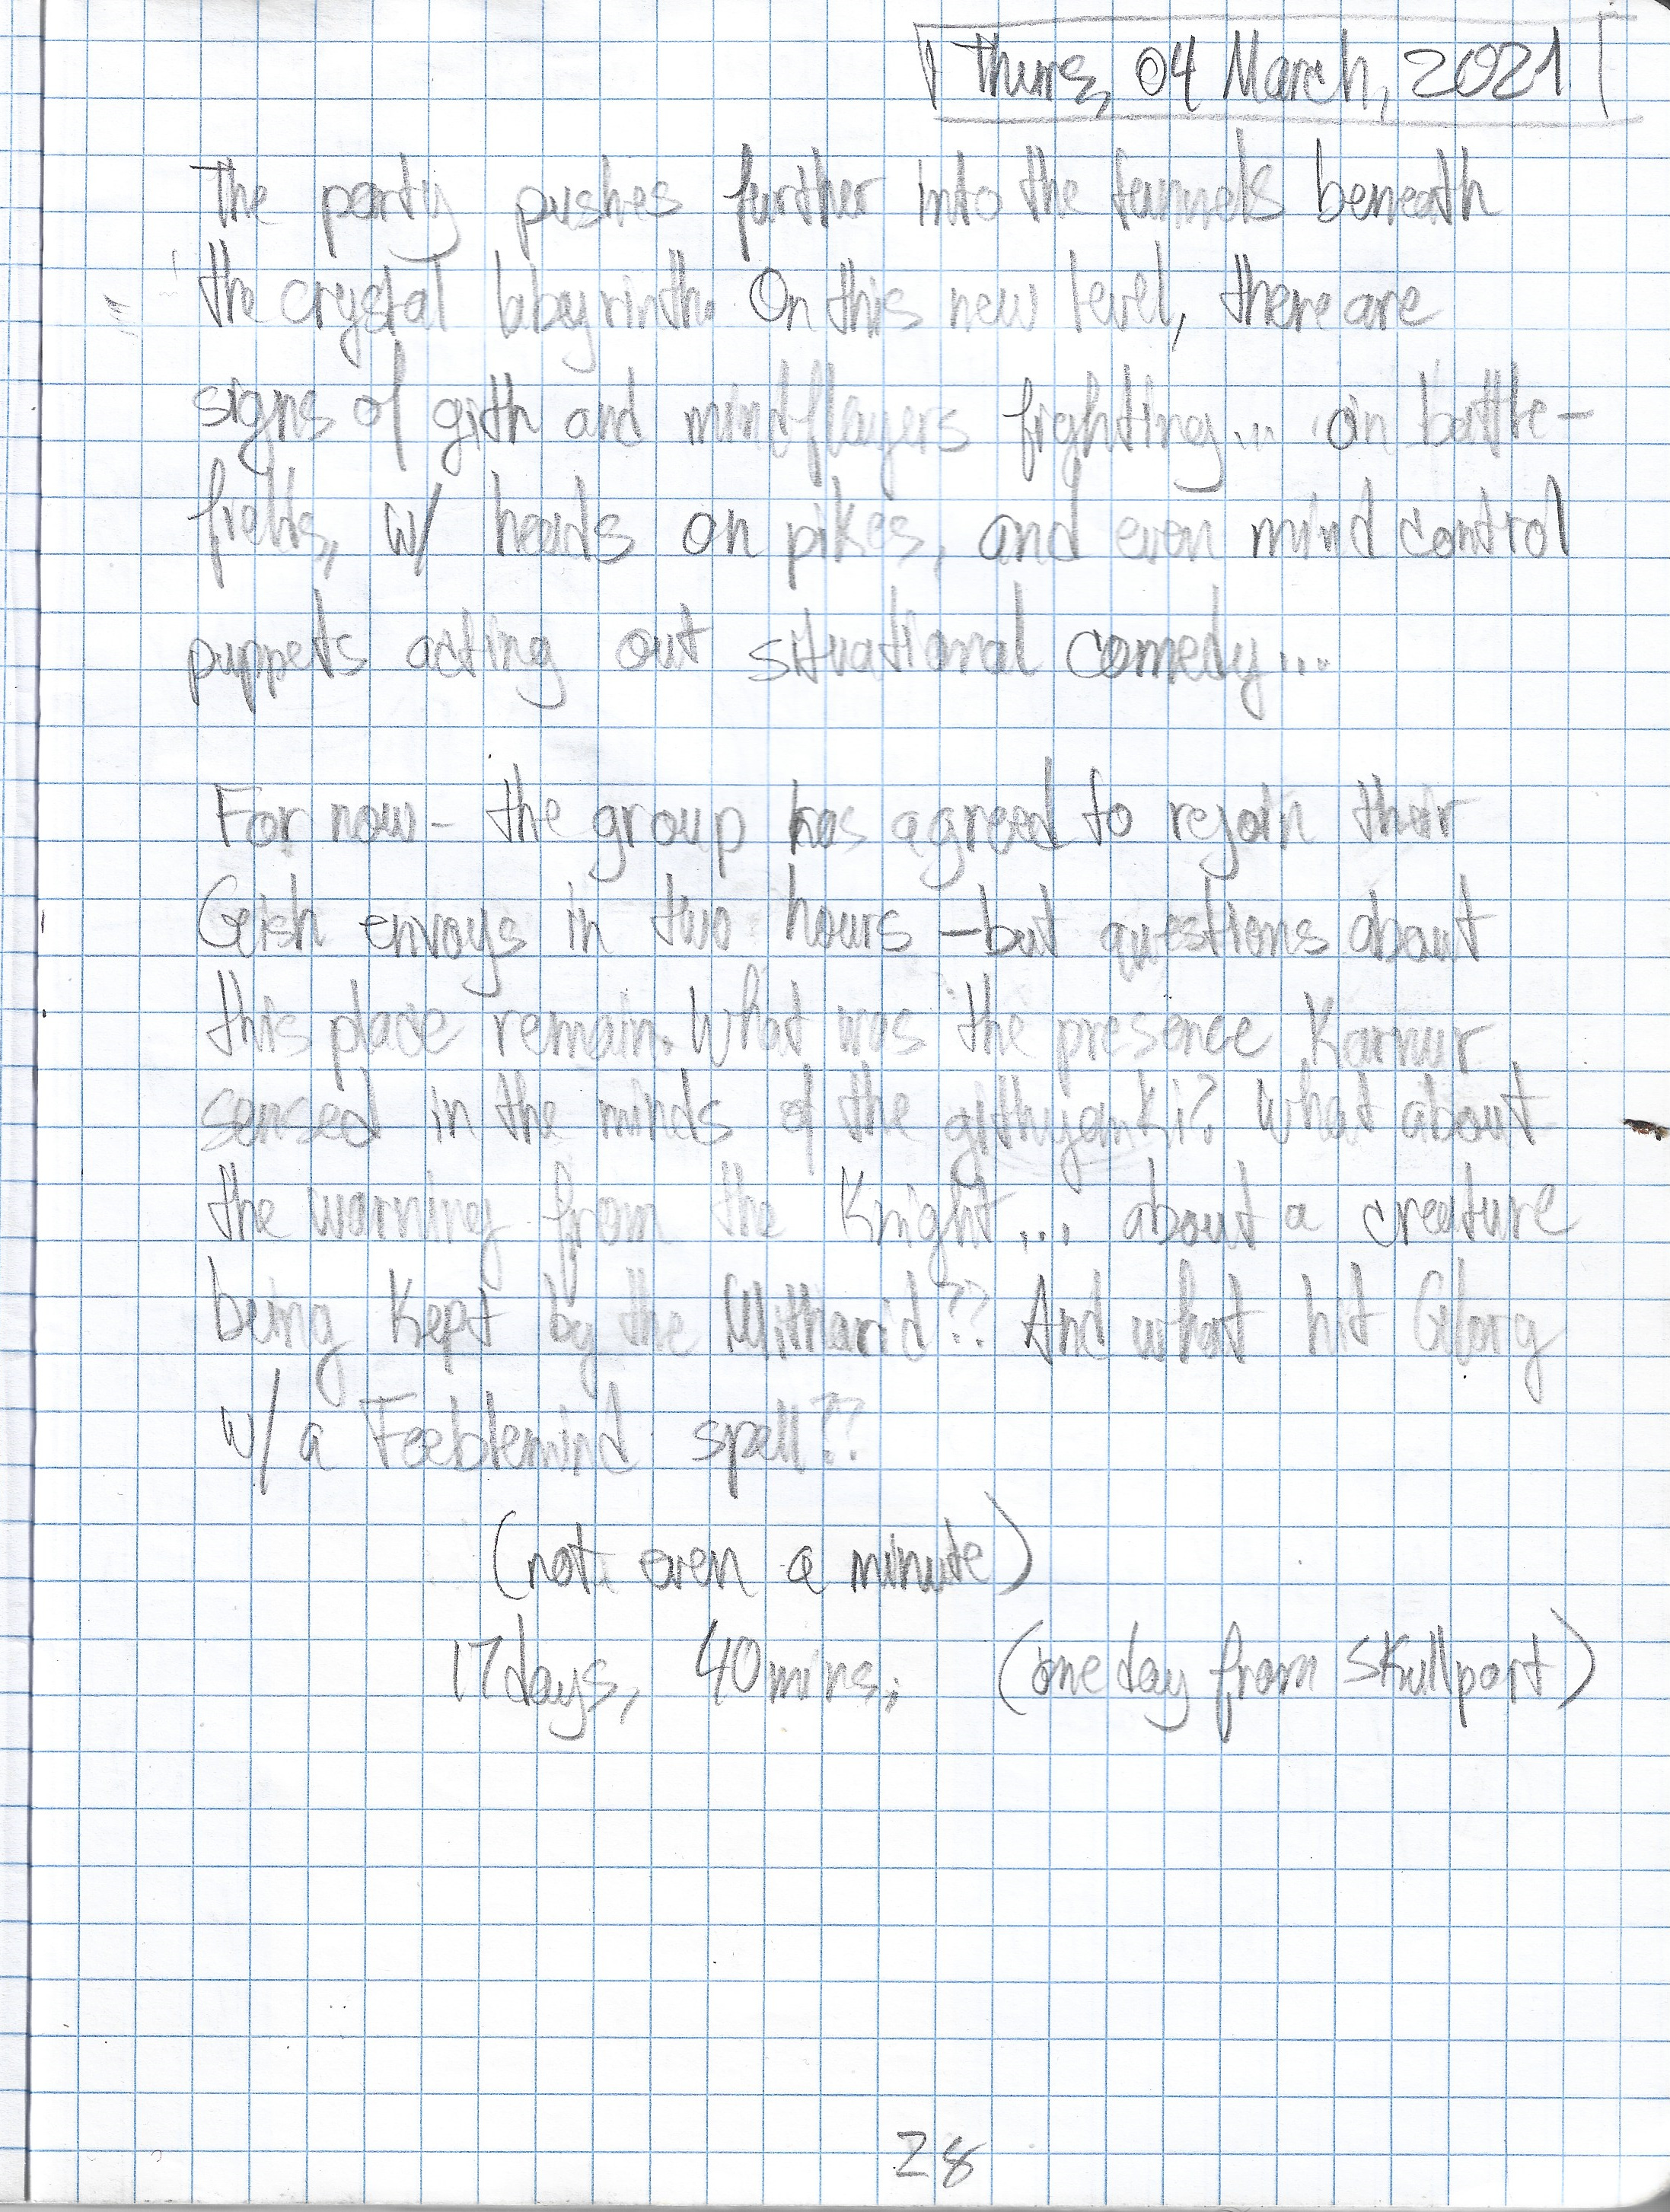 Thurs, 04 March, 2021
The party pushes further into the tunnels beneath
the crystal labyrinth. On this new level, there are
signs of gith and mindflayers fighting... on battle-
fields, w/ heads on pikes, and even mind control
puppets acting out situational comedy...
For now - the group has agreed to rejoin their
Geish envoys in two hours - but questions about
this place remain. What was the presence Karnur
sensed in the minds of the githyanki? What about
the warning from the Knight... about a creature
being kept by the Ulitharid?? And what hit Glorg
w/ a Feeblemind spell??
(not even a minute)
17 days, 40 mins; (one day from Skullport)
28